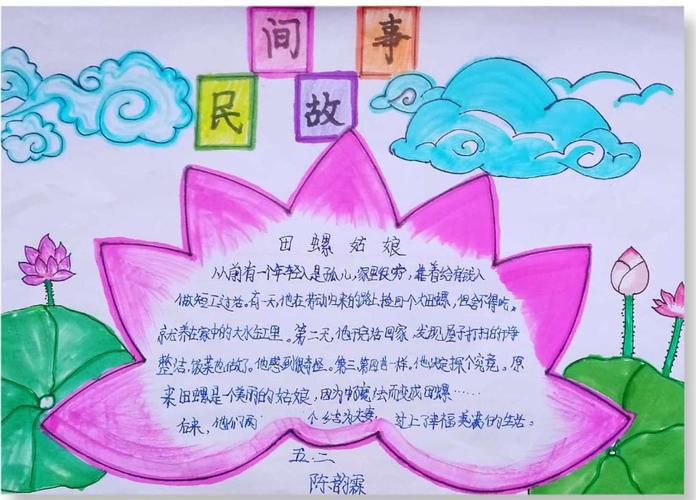 民间故事
田螺姑娘
从前有一个年轻人是孤儿,家里很穷,靠着给有钱人
做短工过活。有一天,他在劳动归来的路上捡回个大田螺,但舍不得吃。
就养在家中的大水缸里。第二天,他干完活回家,发现屋子打扫的干净
整洁,饭菜也做了。他感到很奇怪。第三、第四也一样。他决定探个究竟。原
来田螺是一个美丽的姑娘,因为中魔法而变成田螺……
后来,他们两个结为夫妻,过上了幸福美满的生活。
五.二
陈韵霖